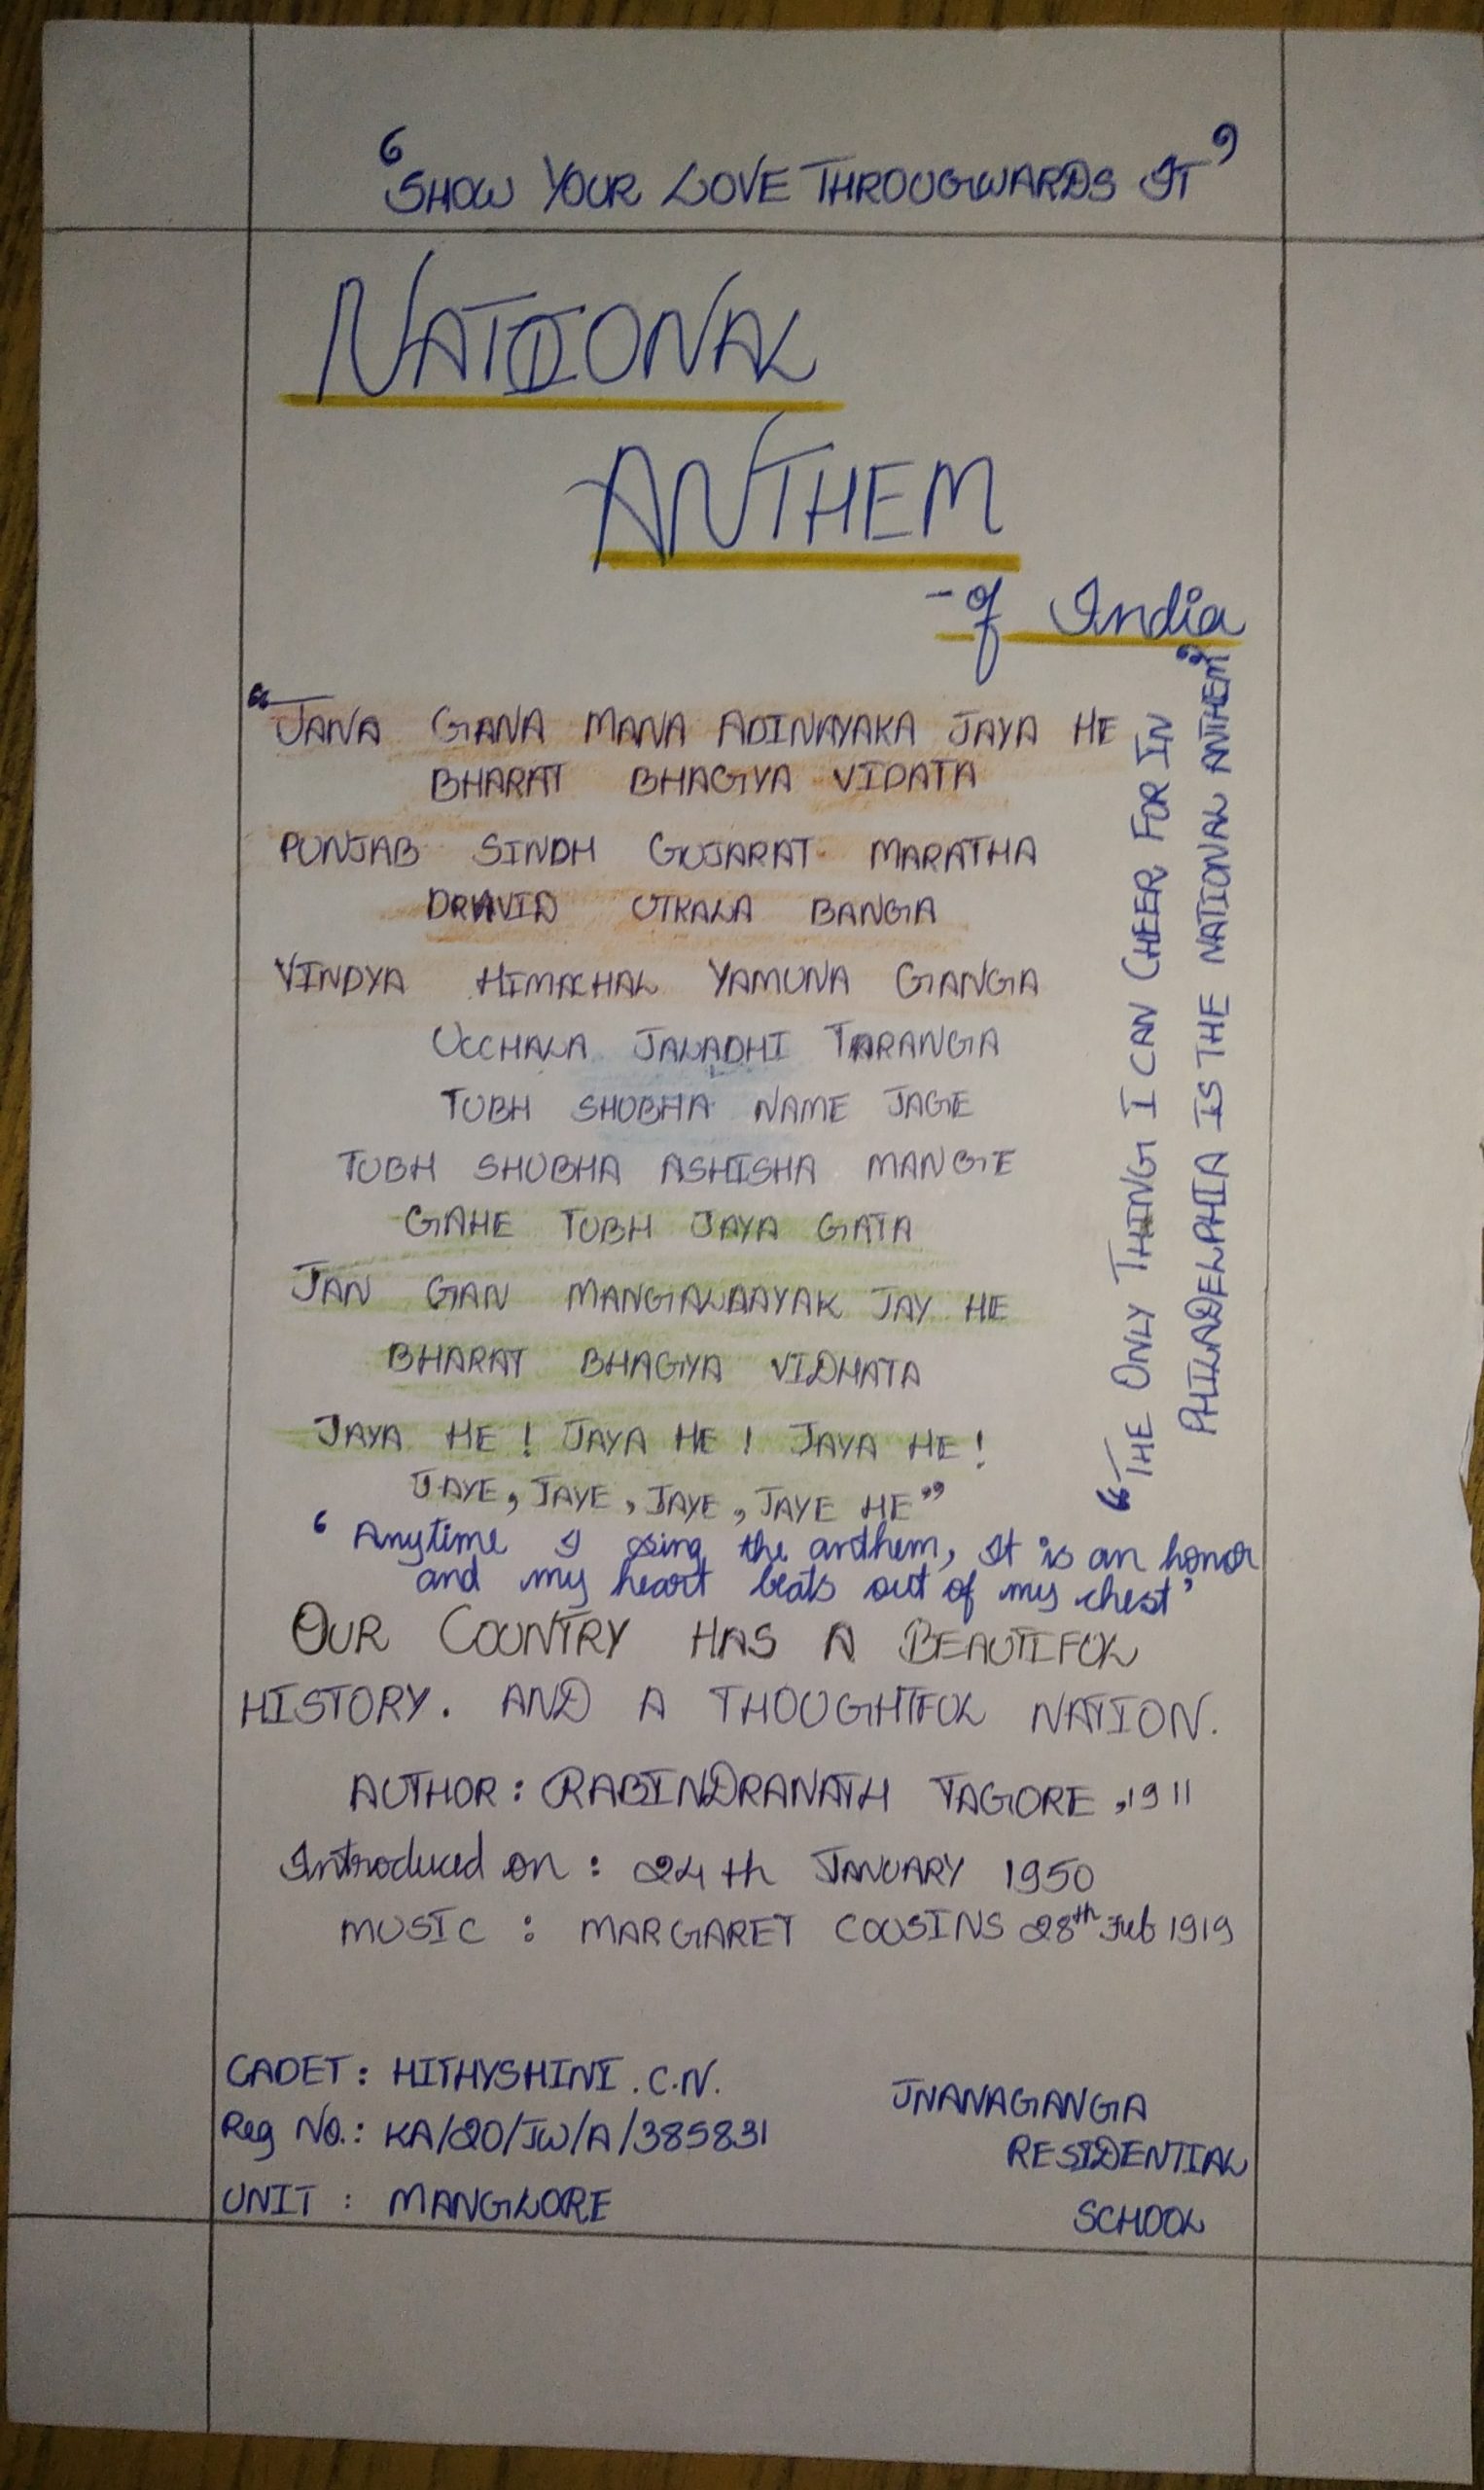 ‘SHOW YOUR LOVE THROUGWARDS IT’
NATIONAL
ANTHEM
- of India
“JANA GANA MANA ADINAYAKA JAYA HE
BHARAT BHAGYA VIDATA
PUNJAB SINDH GUJARAT MARATHA
DRAVID UTKALA BANGA
VINDYA HIMACHAL YAMUNA GANGA
UCCHALA JALADHI TARANGA
TUBH SHUBHA NAME JAGE
TUBH SHUBHA ASHISHA MANGE
GAHE TUBH JAYA GATA
JAN GAN MANGALDAAYAK JAY HE
BHARAT BHAGYA VIDHATA
JAYA HE! JAYA HE! JAYA HE!
JAYE, JAYE, JAYE, JAYE HE”
“THE ONLY THING I CAN CHEER FOR IN
PHILADELPHIA IS THE NATIONAL ANTHEM”
‘Anytime I sing the anthem, It is an honor
and my heart beats out of my chest’
OUR COUNTRY HAS A BEAUTIFUL
HISTORY. AND A THOUGHTFUL NATION.
AUTHOR: RABINDRANATH TAGORE, 1911
Introduced on: 24th JANUARY 1950
MUSIC : MARGARET COUSINS 28th Feb 1919
CADET: HITHYSHINI.C.N.
Reg No.: KA/20/JW/A/385831
UNIT : MANGLORE
JNANAGANGA
RESIDENTIAL
SCHOOL